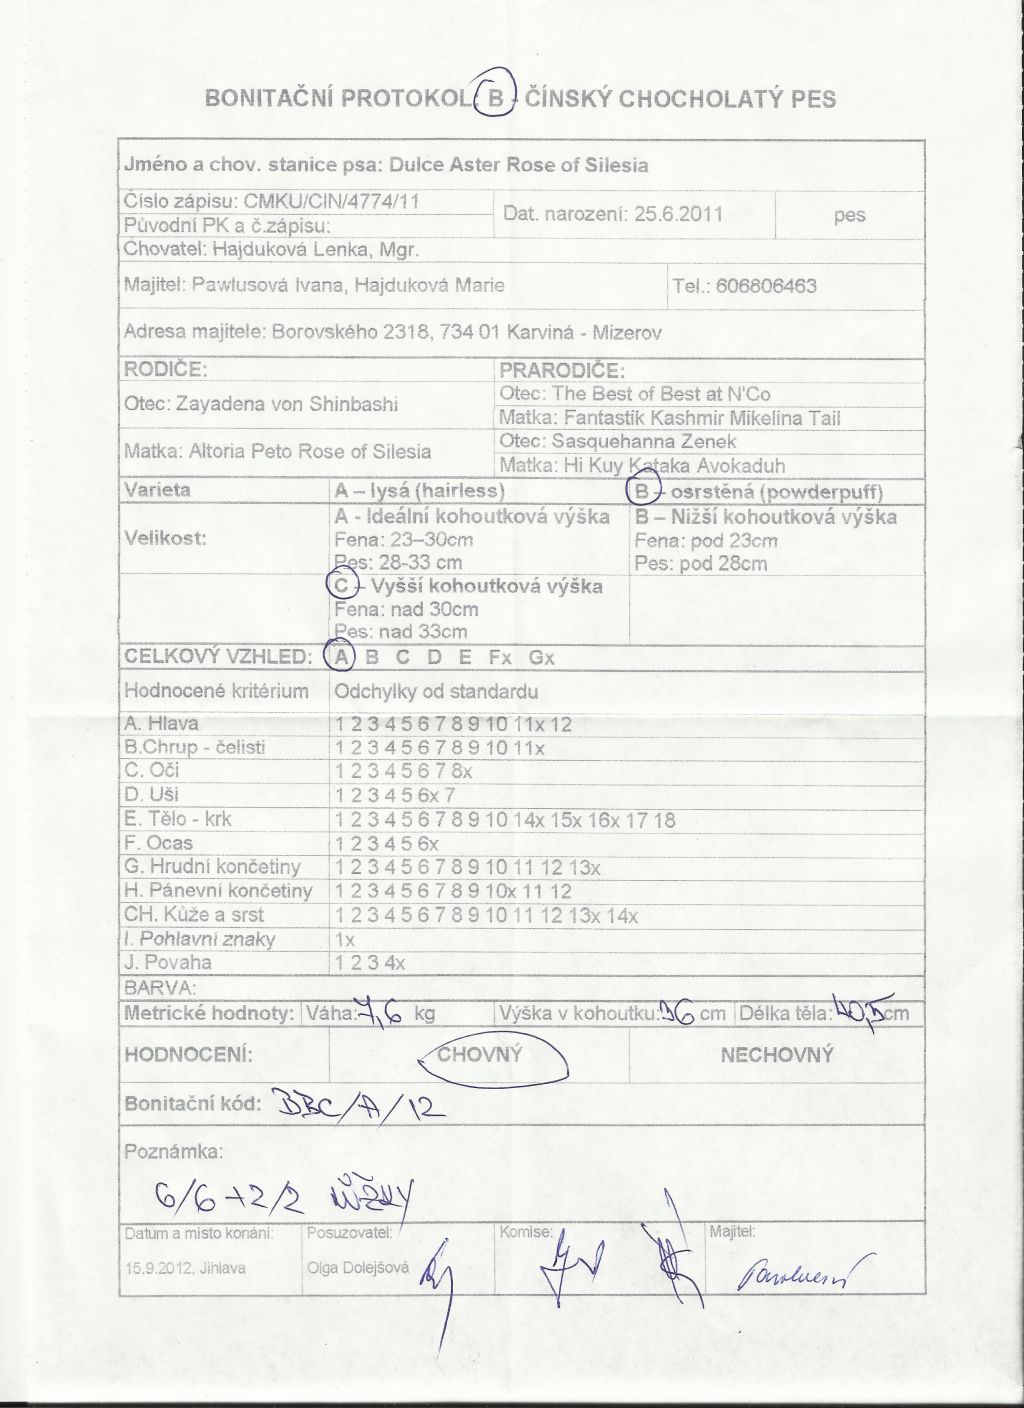 BONITAČNÍ PROTOKOL: B - ČÍNSKÝ CHOCHOLATÝ PES
Jméno a chov. stanice psa: Dulce Aster Rose of Silesia
Číslo zápisu: CMKU/CIN/4774/11
Původní PK a č.zápisu:
Dat. narození: 25.6.2011
pes
Chovatel: Hajduková Lenka, Mgr.
Majitel: Pawlusová Ivana, Hajduková Marie
Tel.: 606806463
Adresa majitele: Borovského 2318, 734 01 Karviná - Mizerov
RODIČE:
PRARODIČE:
Otec: Zayadena von Shinbashi
Otec: The Best of Best at N'Co
Matka: Fantastik Kashmir Mikelina Tail
Matka: Altoria Peto Rose of Silesia
Otec: Sasquehanna Zenek
Matka: Hi Kuy Kataka Avokaduh
Varieta
A – lysá (hairless)
B – osrstěná (powderpuff)
Velikost:
A - Ideální kohoutková výška
Fena: 23–30cm
Pes: 28-33 cm
B – Nižší kohoutková výška
Fena: pod 23cm
Pes: pod 28cm
C – Vyšší kohoutková výška
Fena: nad 30cm
Pes: nad 33cm
CELKOVÝ VZHLED: A B C D E Fx Gx
Hodnocené kritérium Odchylky od standardu
A. Hlava 1 2 3 4 5 6 7 8 9 10 11x 12
B.Chrup - čelisti 1 2 3 4 5 6 7 8 9 10 11x
C. Oči 1 2 3 4 5 6 7 8x
D. Uši 1 2 3 4 5 6x 7
E. Tělo - krk 1 2 3 4 5 6 7 8 9 10 14x 15x 16x 17 18
F. Ocas 1 2 3 4 5 6x
G. Hrudní končetiny 1 2 3 4 5 6 7 8 9 10 11 12 13x
H. Pánevní končetiny 1 2 3 4 5 6 7 8 9 10x 11 12
CH. Kůže a srst 1 2 3 4 5 6 7 8 9 10 11 12 13x 14x
I. Pohlavní znaky 1x
J. Povaha 1 2 3 4x
BARVA:
Metrické hodnoty: Váha: 7,6 kg Výška v kohoutku: 36 cm Délka těla: 40,5 cm
HODNOCENÍ: CHOVNÝ NECHOVNÝ
Bonitační kód: BBC/A/12
Poznámka:
6/6 +2/2 NŮŽKY
Datum a místo konání: Posuzovatel: Komise: Majitel:
15.9.2012, Jihlava Olga Dolejšová